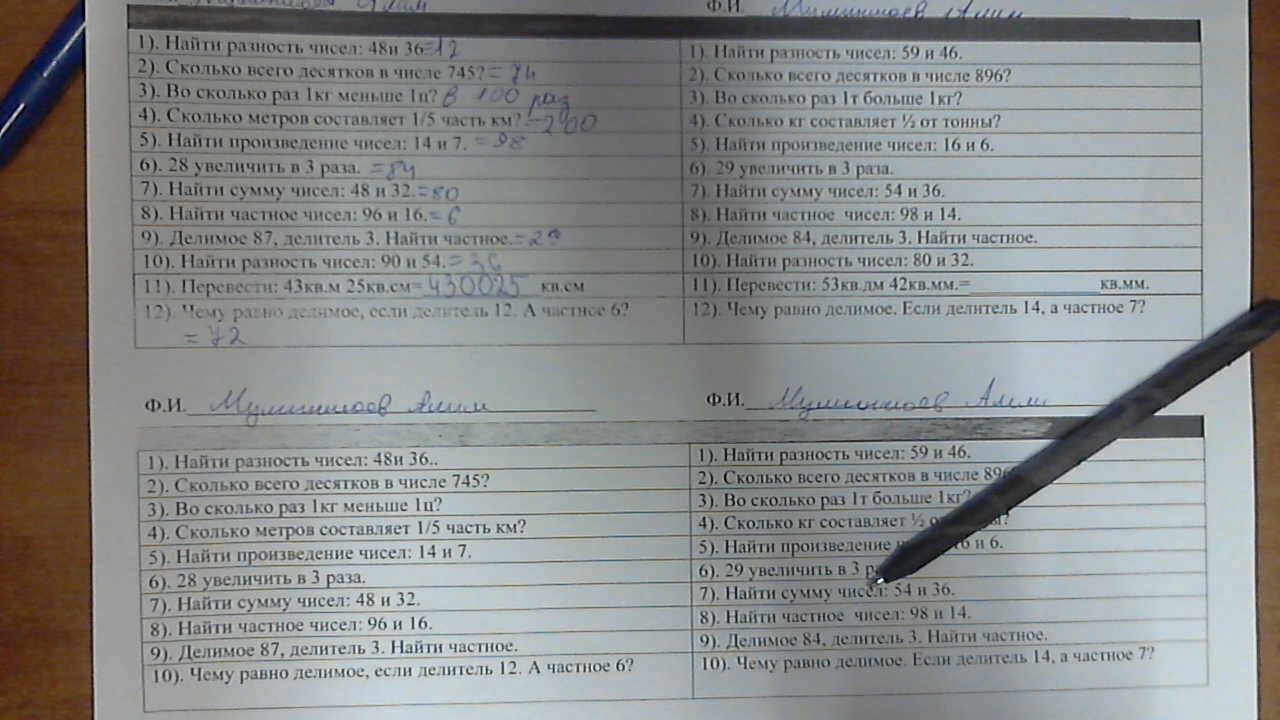 Ф.И.
1). Найти разность чисел: 48и 36=12
2). Сколько всего десятков в числе 745? = 74
3). Во сколько раз 1кг меньше 1ц? в 100 раз
4). Сколько метров составляет 1/5 часть км? =200
5). Найти произведение чисел: 14 и 7. = 98
6). 28 увеличить в 3 раза. =84
7). Найти сумму чисел: 48 и 32.=80
8). Найти частное чисел: 96 и 16.=6
9). Делимое 87, делитель 3. Найти частное.=29
10). Найти разность чисел: 90 и 54.=36
11). Перевести: 43кв.м 25кв.см= 430025 кв.см
12). Чему равно делимое, если делитель 12. А частное 6?
= 72
1). Найти разность чисел: 59 и 46.
2). Сколько всего десятков в числе 896?
3). Во сколько раз 1т больше 1кг?
4). Сколько кг составляет ½ от тонны?
5). Найти произведение чисел: 16 и 6.
6). 29 увеличить в 3 раза.
7). Найти сумму чисел: 54 и 36.
8). Найти частное чисел: 98 и 14.
9). Делимое 84, делитель 3. Найти частное.
10). Найти разность чисел: 80 и 32.
11). Перевести: 53кв.дм 42кв.мм.= кв.мм.
12). Чему равно делимое. Если делитель 14, а частное 7?
Ф.И. Алим
1). Найти разность чисел: 48и 36..
2). Сколько всего десятков в числе 745?
3). Во сколько раз 1кг меньше 1ц?
4). Сколько метров составляет 1/5 часть км?
5). Найти произведение чисел: 14 и 7.
6). 28 увеличить в 3 раза.
7). Найти сумму чисел: 48 и 32.
8). Найти частное чисел: 96 и 16.
9). Делимое 87, делитель 3. Найти частное.
10). Чему равно делимое, если делитель 12. А частное 6?
Ф.И. Алим
1). Найти разность чисел: 59 и 46.
2). Сколько всего десятков в числе 896
3). Во сколько раз 1т больше 1кг?
4). Сколько кг составляет ½
5). Найти произведение 16 и 6.
6). 29 увеличить в 3
7). Найти сумму чисел: 54 и 36.
8). Найти частное чисел: 98 и 14.
9). Делимое 84, делитель 3. Найти частное.
10). Чему равно делимое. Если делитель 14, а частное 7?